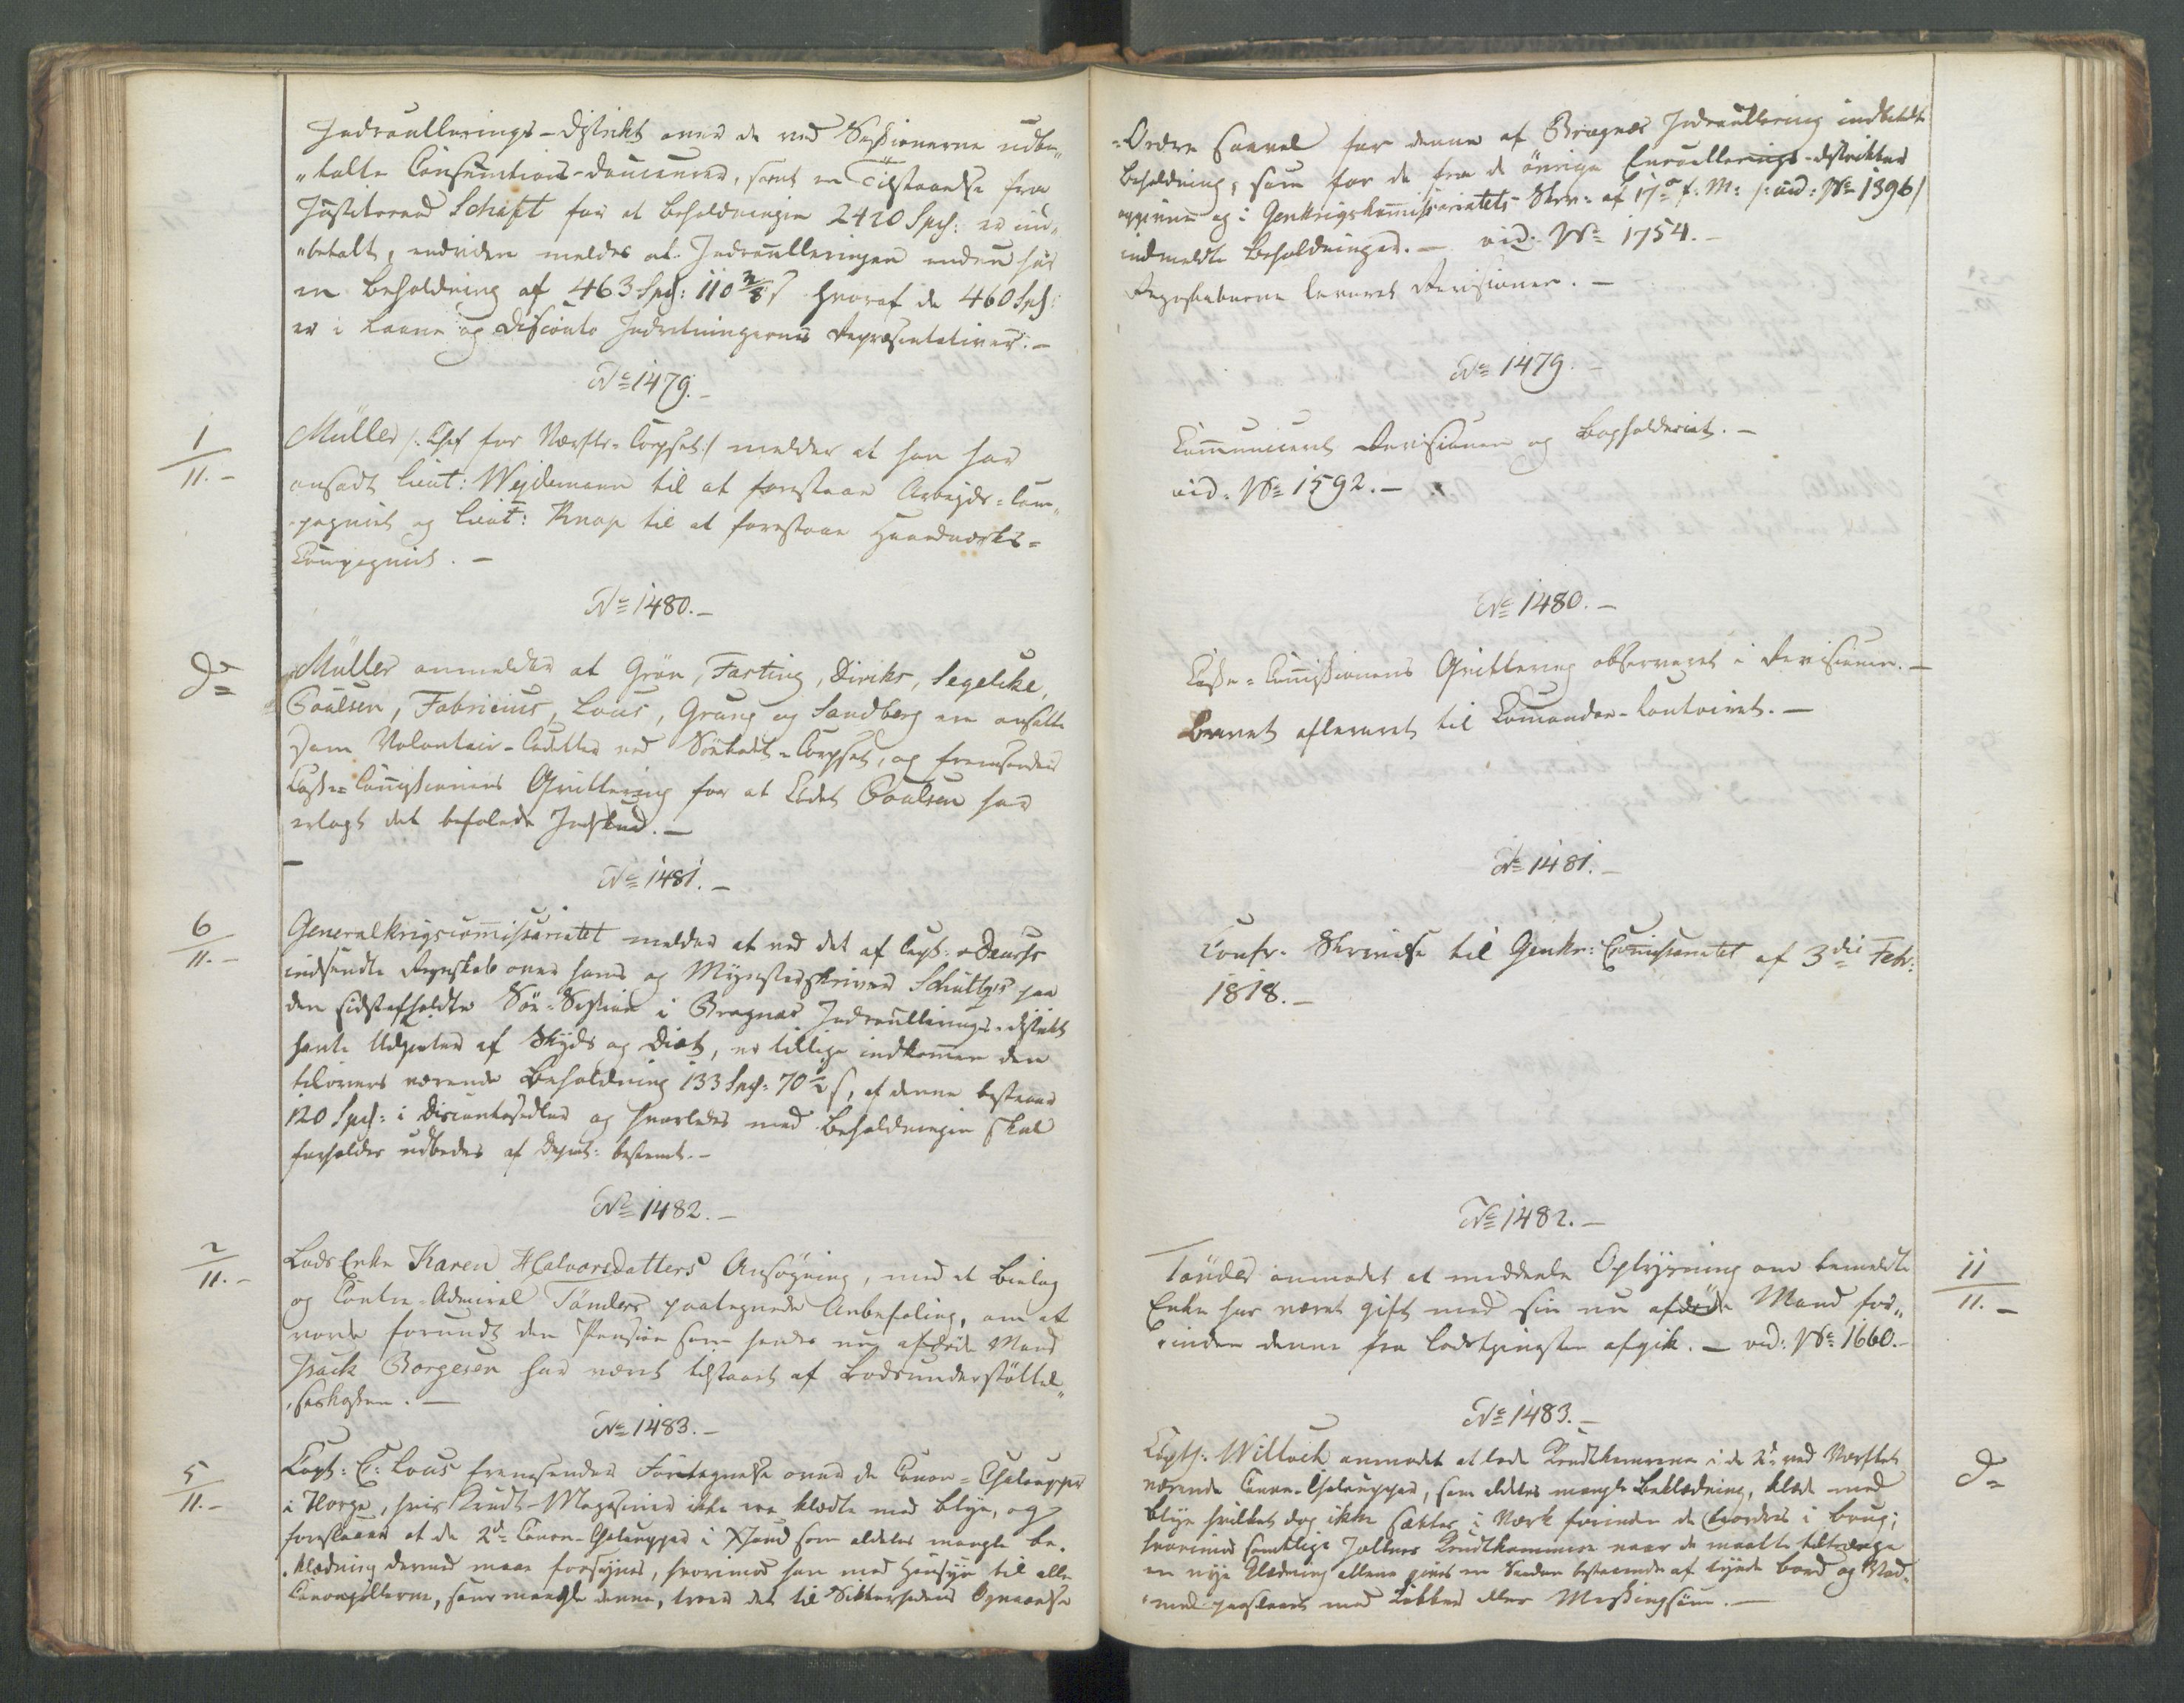 Indroullerings-Distrikt over de ved Sessionerne udbe„
„talte Consumtions-Douceurer, samt en Tilstaaelse fra
Justitsraad Schafft for at Beholdningen 2420 Spd: er ind„
„betalt, endviden meldes at Indroulleringen endnu har
en Beholdning af 463 Spd: 110 3/8 s hvoraf de 460 Spd:
er i Laane og Disconto Indretningernes Repræsentativer.-
No 1479.-
1/11.-
Müller /: Chef for Værfts-Corpset :/ melder at han har
ansadt Lieut: Wejdemann til at forestaae Arbejds-Com„
„pagniet og Lieut: Knap til at forestaae Haandværks-
Compagniet.-
No 1480.-
Do
Müller anmelder at Grön, Fasting, Diriks, Segelcke,
Poulsen, Fabricius, Lous, Grung og Sandberg ere ansatte
som Volontair-Cadetter ved Söekadet-Corpset, og fremsender
Casse-Commissionens Qvittering for at Cadet Poulsen har
erlagt det befalede Indskud.-
No 1481.-
6/11.-
Generalkrigscommissariatet melder at ved det af Capt:
indsendte Regnskab over hans og Mynsterskriver Schültzes paa
den sidstafholdte Söe-Session i Bragnæs Indroullerings-Distrikt
havte Udgivter af Skyds og Diæt, er tillige indkommen den
tilovers værende Beholdning 133 Spd: 70 1/2 s, af denne bestaaer
120 Spd: i Discontosedler og hvorledes med Beholdningen skal
forholdes udbedes af Depart: bestemt.-
No 1482.-
2/11.-
Lods Enke Karen Halvorsdatters Ansögning, med et Bielag
og Contre-Admiral Tönders paategnede Anbefaling, om at
vorde forundt den Pension som hendes nu afdöde Mand
Isack Borgesen har været tilstaaet af Lodsunderstöttel„
„seskassen.-
No 1483.-
5/11.-
Capt: C: Lous fremsender Fortegnelse over de Canon-Chalouper
i Norge, hvis Krudt-Magasiner ikke ere klædte med Blye, og
foreslaaer at de 2de Canon-Chalouper i Xsand som aldeles mangle be-
-klædning dermed maae forsynes, hvorimod han med Hensyn til alle
Canonjollerne, som mangle denne, troer det til Sikkerhedens Opnaaelse
-Ordre saavel for denne af Bragnæs Indroullering indbetalte
Beholdning, som for de fra de övrige Enroullerings-Distrikter
oppgivne og i Genkrigskommissariatets Skr: af 17de f: M: /: vid: No 1396/
indmeldte Beholdninger.- vid: No 1754.-
Regnskaberne leveret Revisionen.-
No 1479.-
Communiceret Revisionen og Bogholderiet.-
vid: No 1592.-
No 1480.-
Casse-Commissionens Qvittering observeret i Revisionen.-
Brevet afleveret til Commando-Contoiret.-
No 1481.-
Confr. Skrivelse til Genkr: Commissariatet af 3die Febr:
1818.-
No 1482.-
Tönder anmodet at meddeele Oplysning om bemeldte
Enke har været gift med sin nu afdöde Mand for„
„inden denne fra Lodstjenesten afgik.- vid: No 1660.-
11/11.-
No 1483.-
Capt: Willoch anmodet at lade Krudtkamrene i de 2de ved Værftet
værende Canon-Chalouper, som aldeles mangle Beklædning, klæde med
Blye hvilket dog ikke sættes i Værk forinden de beordres i brug;
hvorimod samtlige Jollers Krudtkammere naar de maatte tiltrænge
en nye Klædning allene gives en Saadan bestaaende af tynde bord og
paaslaaet med Kobber eller Messingsöm.-
Do